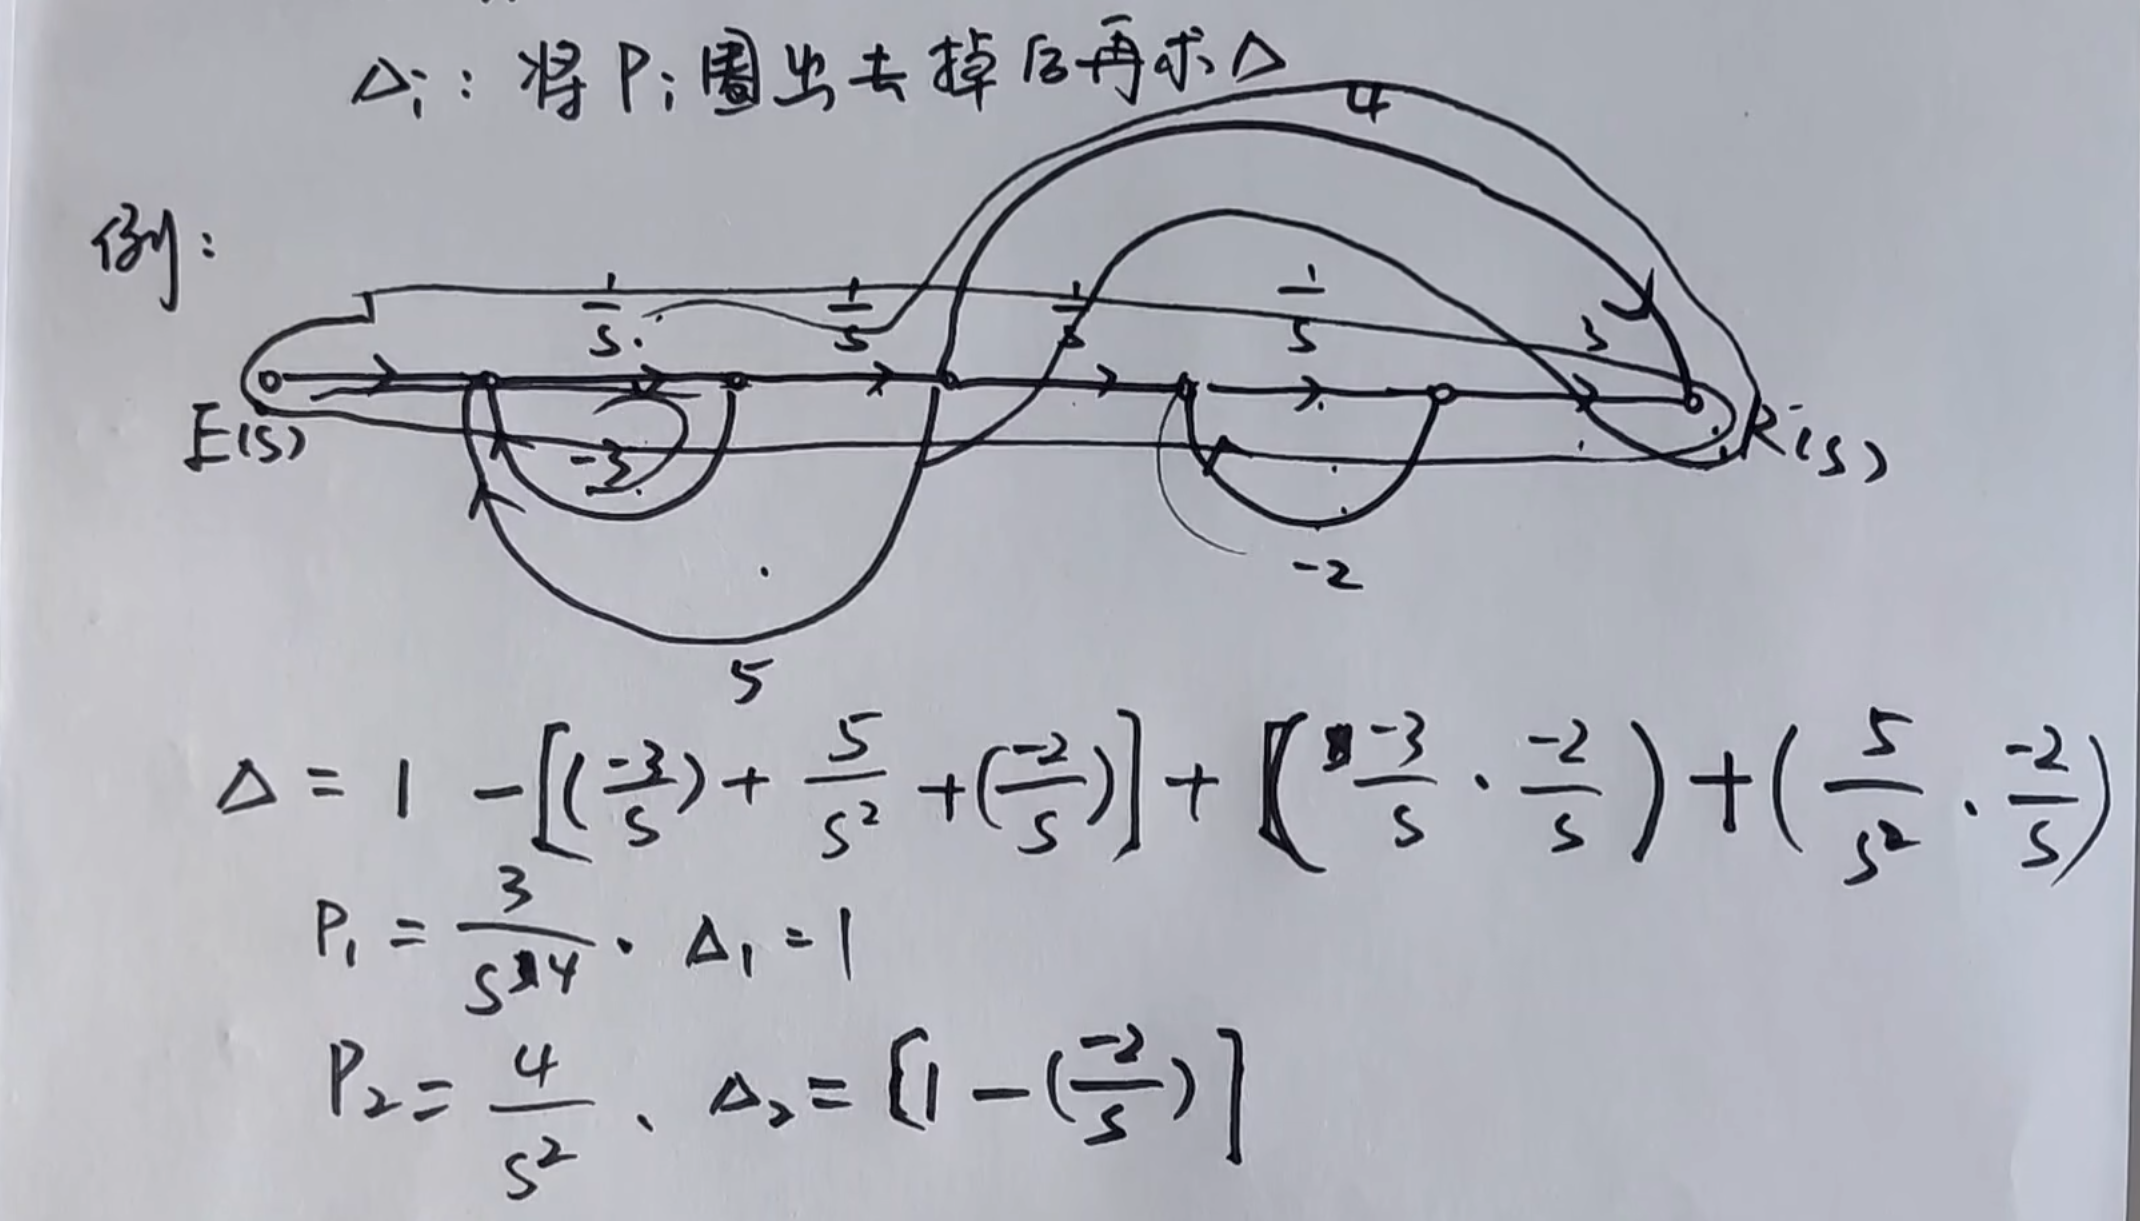 Δi: 将Pi圈出去掉后再求Δ
4
例:
1/s 1/s 1/s 1/s 3
E(s) -3 R(s)
-2
5
Δ = 1 - [(-3/s) + 5/s² + (-2/s)] + [(-3/s · -2/s) + (5/s² · -2/s)
P₁ = 3/s⁴ · Δ₁ = 1
P₂ = 4/s² 、 Δ₂ = [1 - (-2/s)]